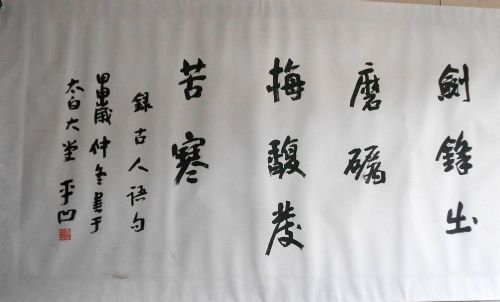 劍鋒出
磨礪
梅馥發
苦寒
錄古人語句
甲申歲仲冬書于
太白大堂平凹